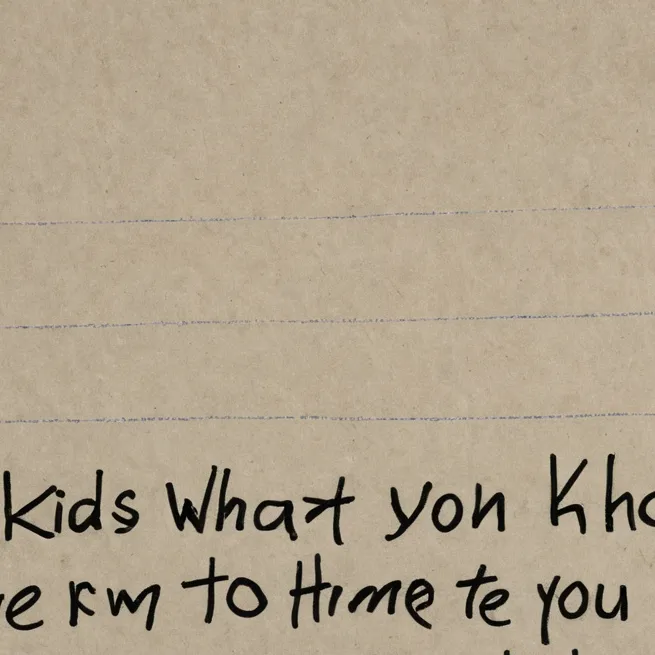 kids What yon Kho
e rm to Hime te you